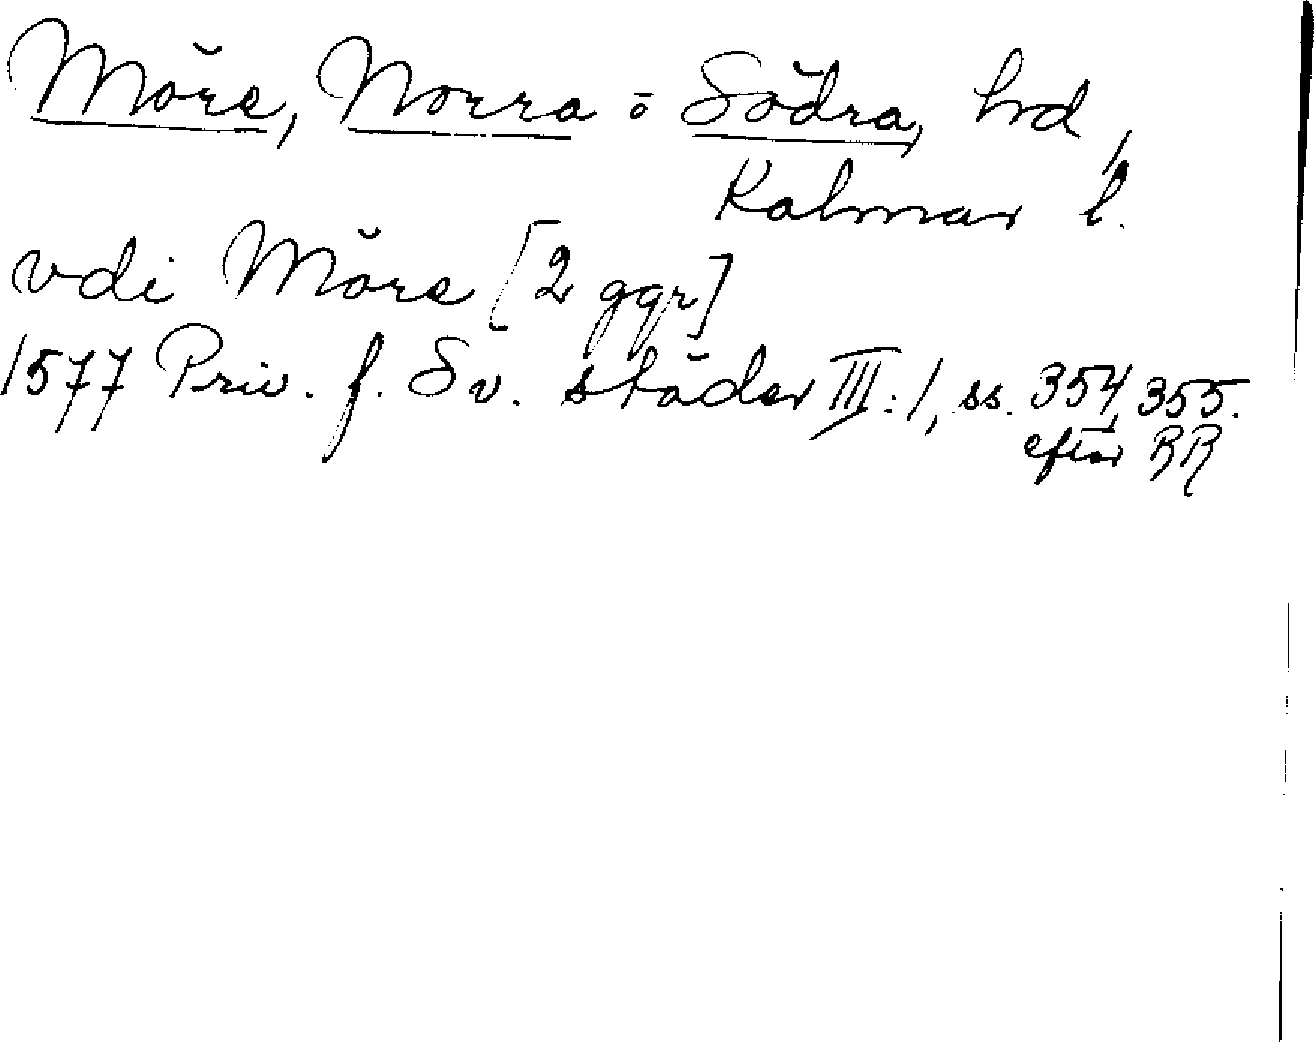 Möre, Norra o Södra, hd,
Kalmar l.
vdi Möre [2 ggr]
1577 Priv. f. Sv. städer III:1, ss. 354, 355.
efter RR